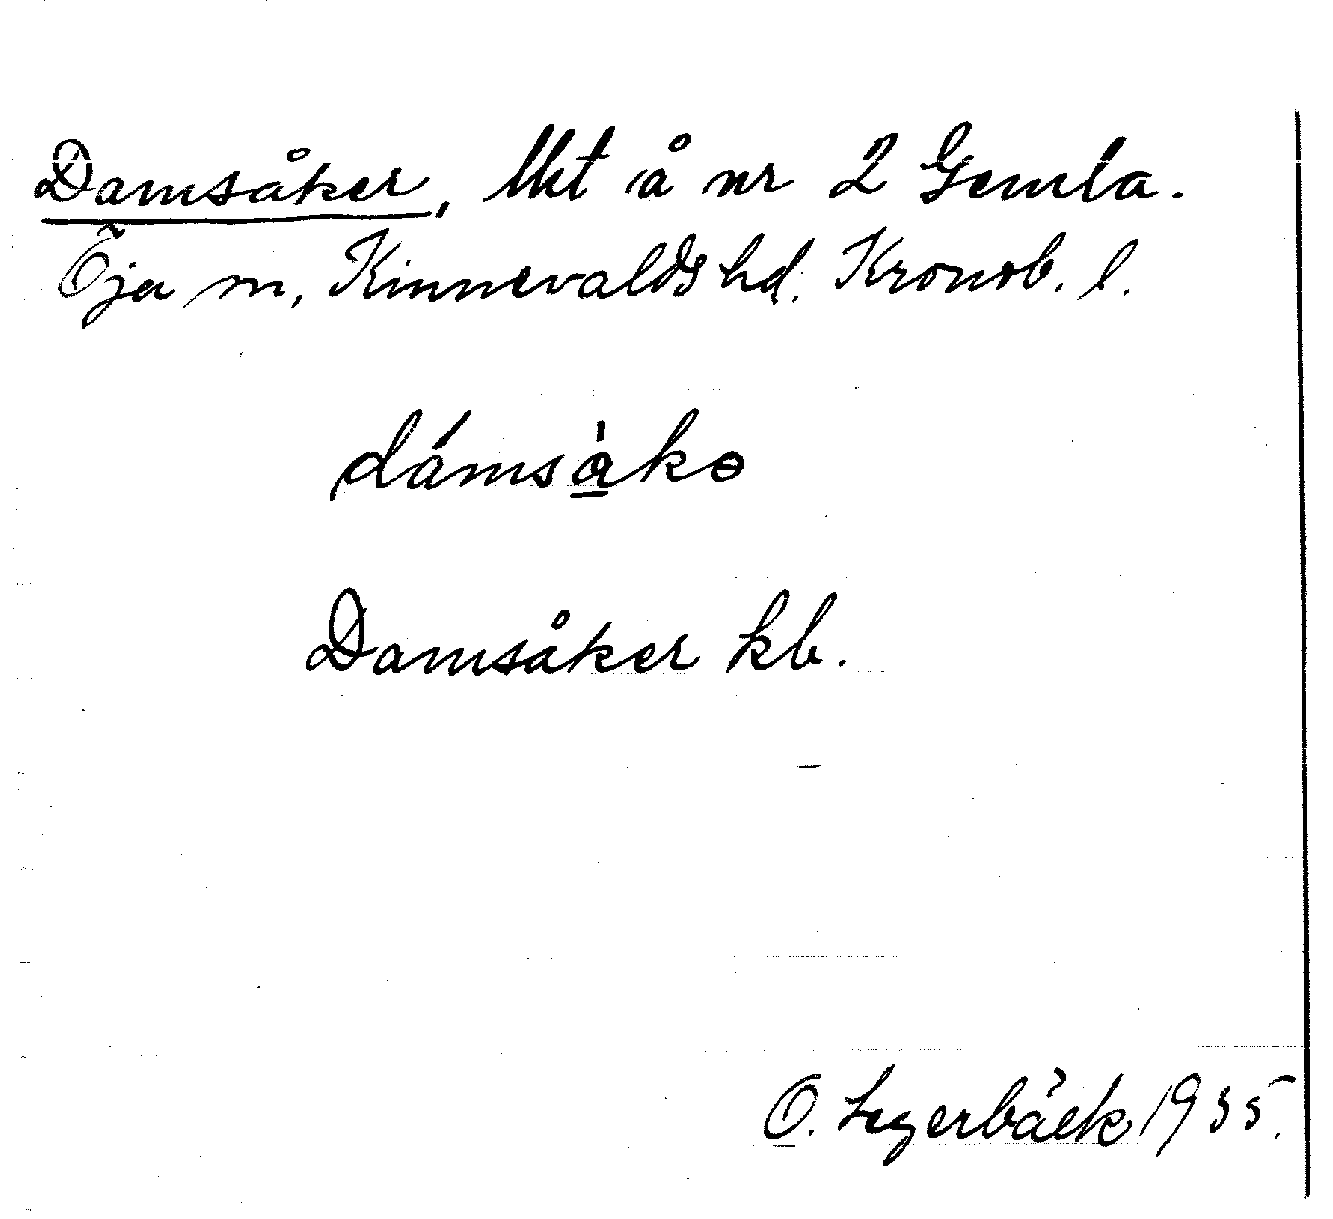 Damsåker, lht å nr 2 Gemla.
Öja sn, Kinnevalds hd. Kronob. l.
dámsàkə
Damsåker kb.
O. 1935.